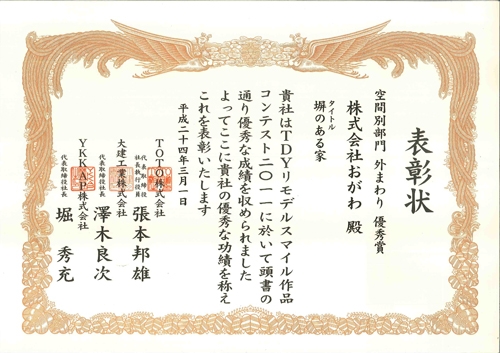 表彰状
空間別部門 外まわり 優秀賞
株式会社おがわ 殿
タイトル
塀のある家
貴社はTDYリモデルスマイル作品
コンテスト二〇一一に於いて頭書の
通り優秀な成績を収められました
よってここに貴社の優秀な功績を称え
これを表彰いたします
平成二十四年三月一日
TOTO株式会社
代表取締役
社長執行役員
張本邦雄
大建工業株式会社
代表取締役社長
澤木良次
YKK AP株式会社
代表取締役社長
堀 秀充